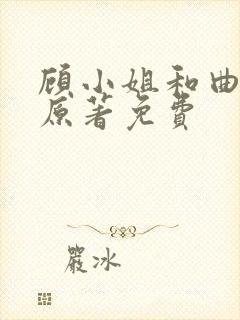 顾小姐和曲
原著免费
严冰